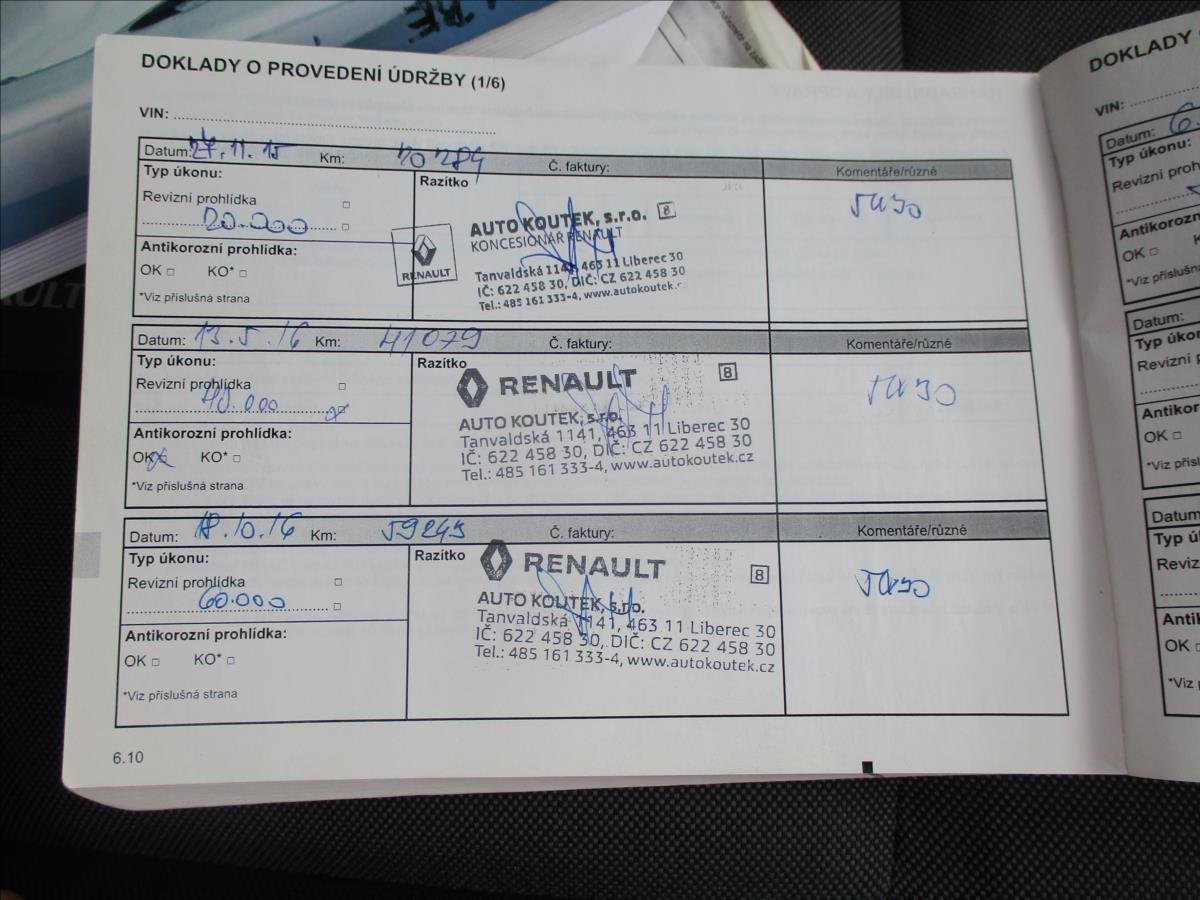 DOKLADY O PROVEDENÍ ÚDRŽBY (1/6)
VIN:
Datum: 27.11.15 Km: 20284 Č. faktury: Komentáře/různé
Typ úkonu: Razítko
Revizní prohlídka
20.000
5W30
AUTO KOUTEK, s.r.o. 8
KONCESIONÁŘ RENAULT
RENAULT
Tanvaldská 1141, 463 11 Liberec 30
IČ: 622 458 30, DIČ: CZ 622 458 30
Tel.: 485 161 333-4, www.autokoutek.c
Antikorozní prohlídka:
OK KO*
*Viz příslušná strana
Datum: 13.5.16 Km: 41079 Č. faktury: Komentáře/různé
Typ úkonu: Razítko
Revizní prohlídka
40.000
5W30
RENAULT 8
AUTO KOUTEK, s.r.o.
Tanvaldská 1141, 463 11 Liberec 30
IČ: 622 458 30, DIČ: CZ 622 458 30
Tel.: 485 161 333-4, www.autokoutek.cz
Antikorozní prohlídka:
OK x KO*
*Viz příslušná strana
Datum: 18.10.16 Km: 59245 Č. faktury: Komentáře/různé
Typ úkonu: Razítko
Revizní prohlídka
60.000
5W30
RENAULT 8
AUTO KOUTEK, s.r.o.
Tanvaldská 1141, 463 11 Liberec 30
IČ: 622 458 30, DIČ: CZ 622 458 30
Tel.: 485 161 333-4, www.autokoutek.cz
Antikorozní prohlídka:
OK KO*
*Viz příslušná strana
6.10
DOKLADY
VIN:
Datum: 6.
Typ úkonu:
Revizní prohlíd
Antikorozní
OK
*Viz příslušn
Datum:
Typ úko
Revizní p
Antikoro
OK
*Viz přísl
Datum
Typ ú
Reviz
Anti
OK
*Viz